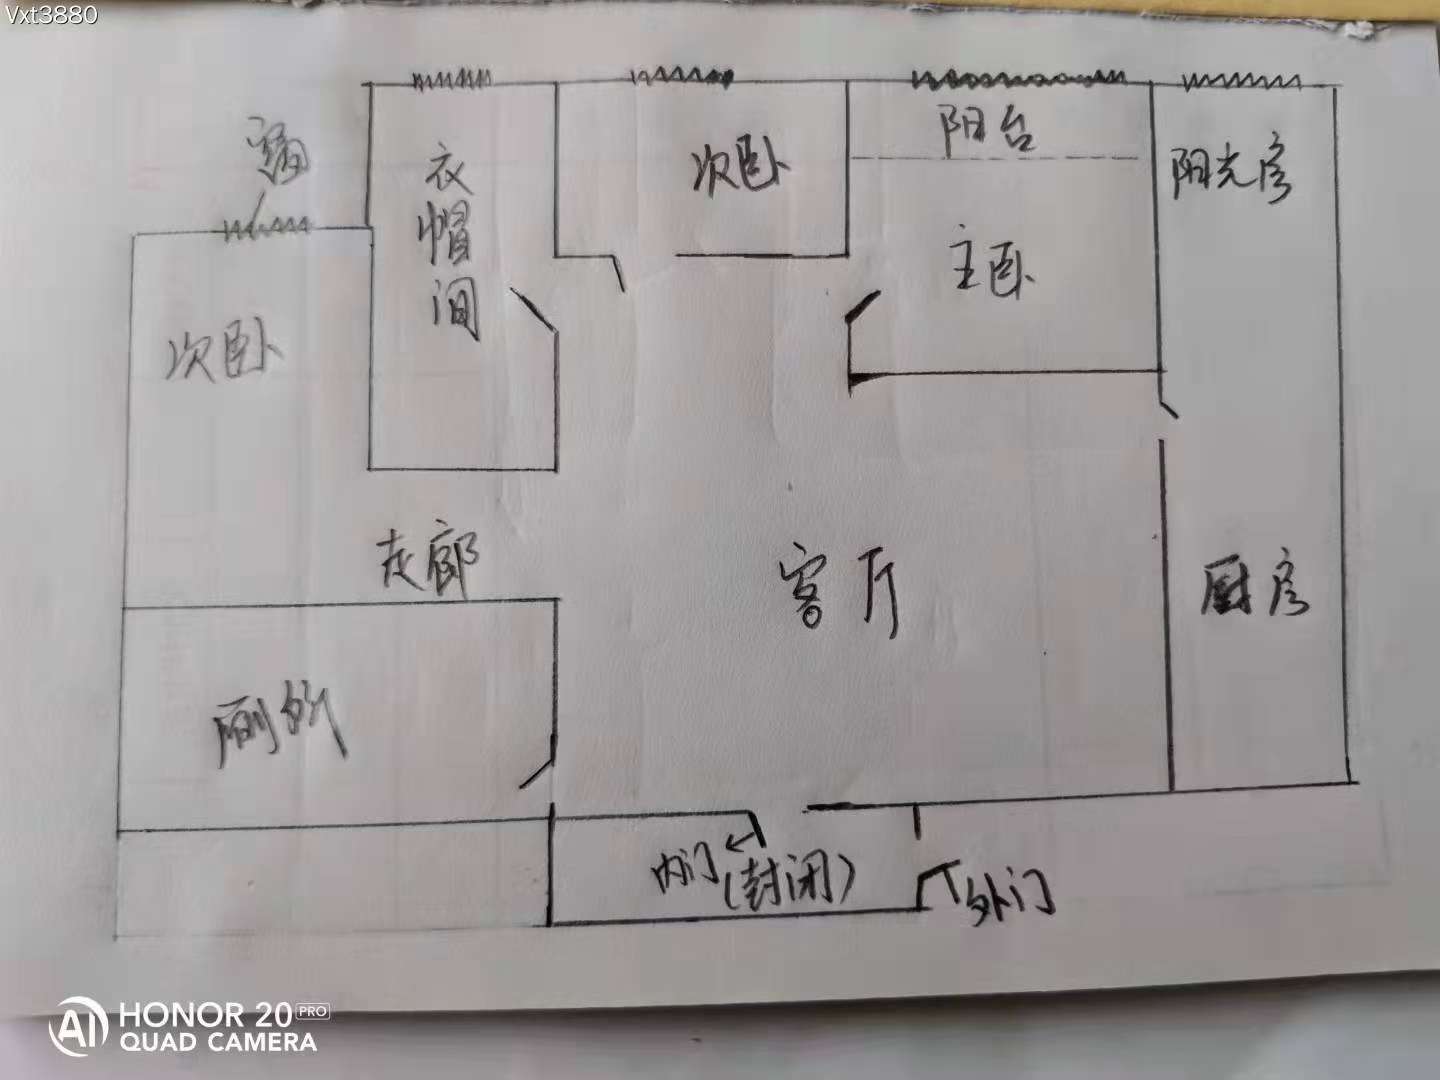 Vxt3880
窗
衣帽间
次卧
阳台
阳光房
主卧
次卧
走廊
客厅
厨房
厕所
内门
(封闭)
外门
HONOR 20 PRO
QUAD CAMERA